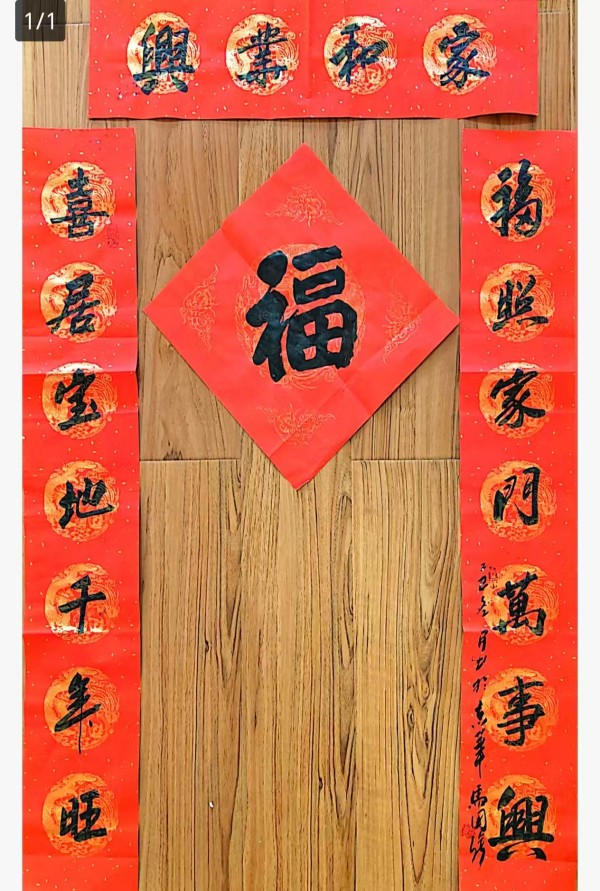 1/1
興業和家
喜居宝地千年旺
福
福照家門萬事興